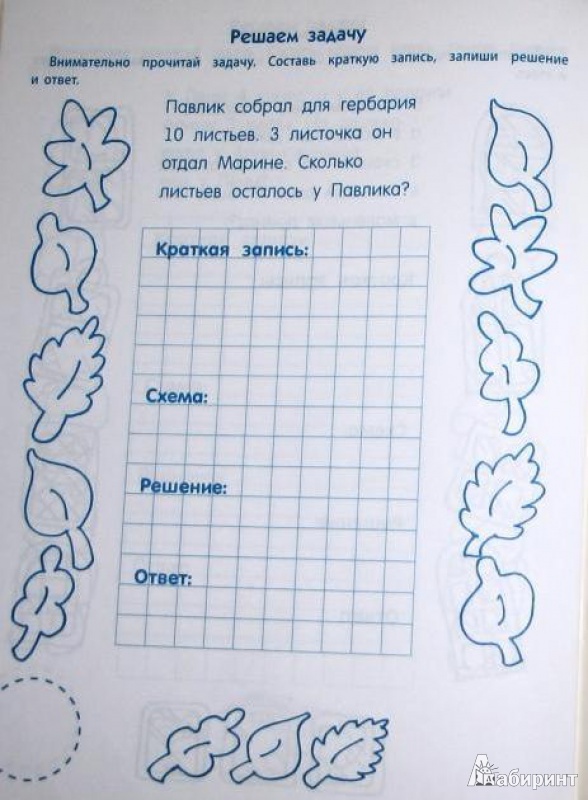 Решаем задачу
Внимательно прочитай задачу. Составь краткую запись, запиши решение
и ответ.
Павлик собрал для гербария
10 листьев. 3 листочка он
отдал Марине. Сколько
листьев осталось у Павлика?
Краткая запись:
Схема:
Решение:
Ответ:
Лабиринт